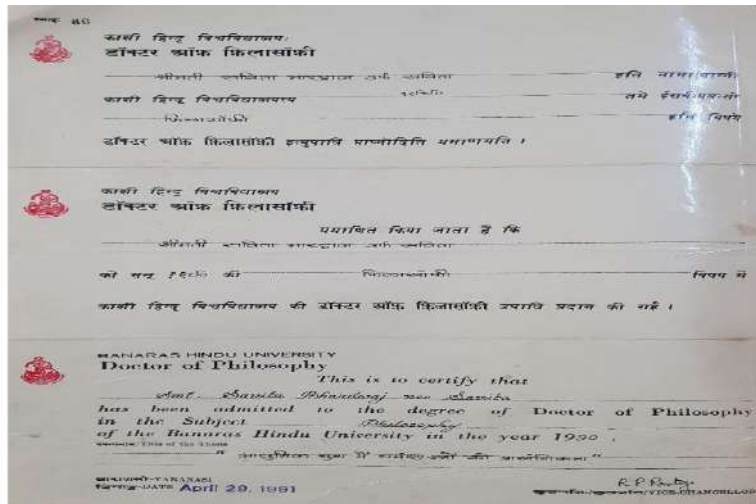 क्रमांक 86
काशी हिन्दू विश्वविद्यालय
डॉक्टर ऑफ़ फ़िलासॉफ़ी
श्रीमती सविता भारद्वाज उर्फ सविता इति नामा
काशी हिन्दू विश्वविद्यालयस्य १९९० तमे
फिलासॉफी इति विषये
डॉक्टर ऑफ़ फ़िलासॉफ़ी इत्युपाधिं प्राप्नोदिति प्रमाणयति ।
काशी हिन्दू विश्वविद्यालय
डॉक्टर ऑफ़ फ़िलासॉफ़ी
प्रमाणित किया जाता है कि
श्रीमती सविता भारद्वाज उर्फ सविता
को सन् १९९० की फिलासॉफी विषय में
काशी हिन्दू विश्वविद्यालय की डॉक्टर ऑफ़ फ़िलासॉफ़ी उपाधि प्रदान की गई ।
BANARAS HINDU UNIVERSITY
Doctor of Philosophy
This is to certify that
Smt. Savita Bhardwaj nee Savita
has been admitted to the degree of Doctor of Philosophy
in the Subject Philosophy
of the Banaras Hindu University in the year 1990.
Title of the Thesis
"आधुनिक युग में की प्रासंगिकता"
वाराणसी-VARANASI
दिनांक-DATE April 29, 1991
VICE-CHANCELLOR